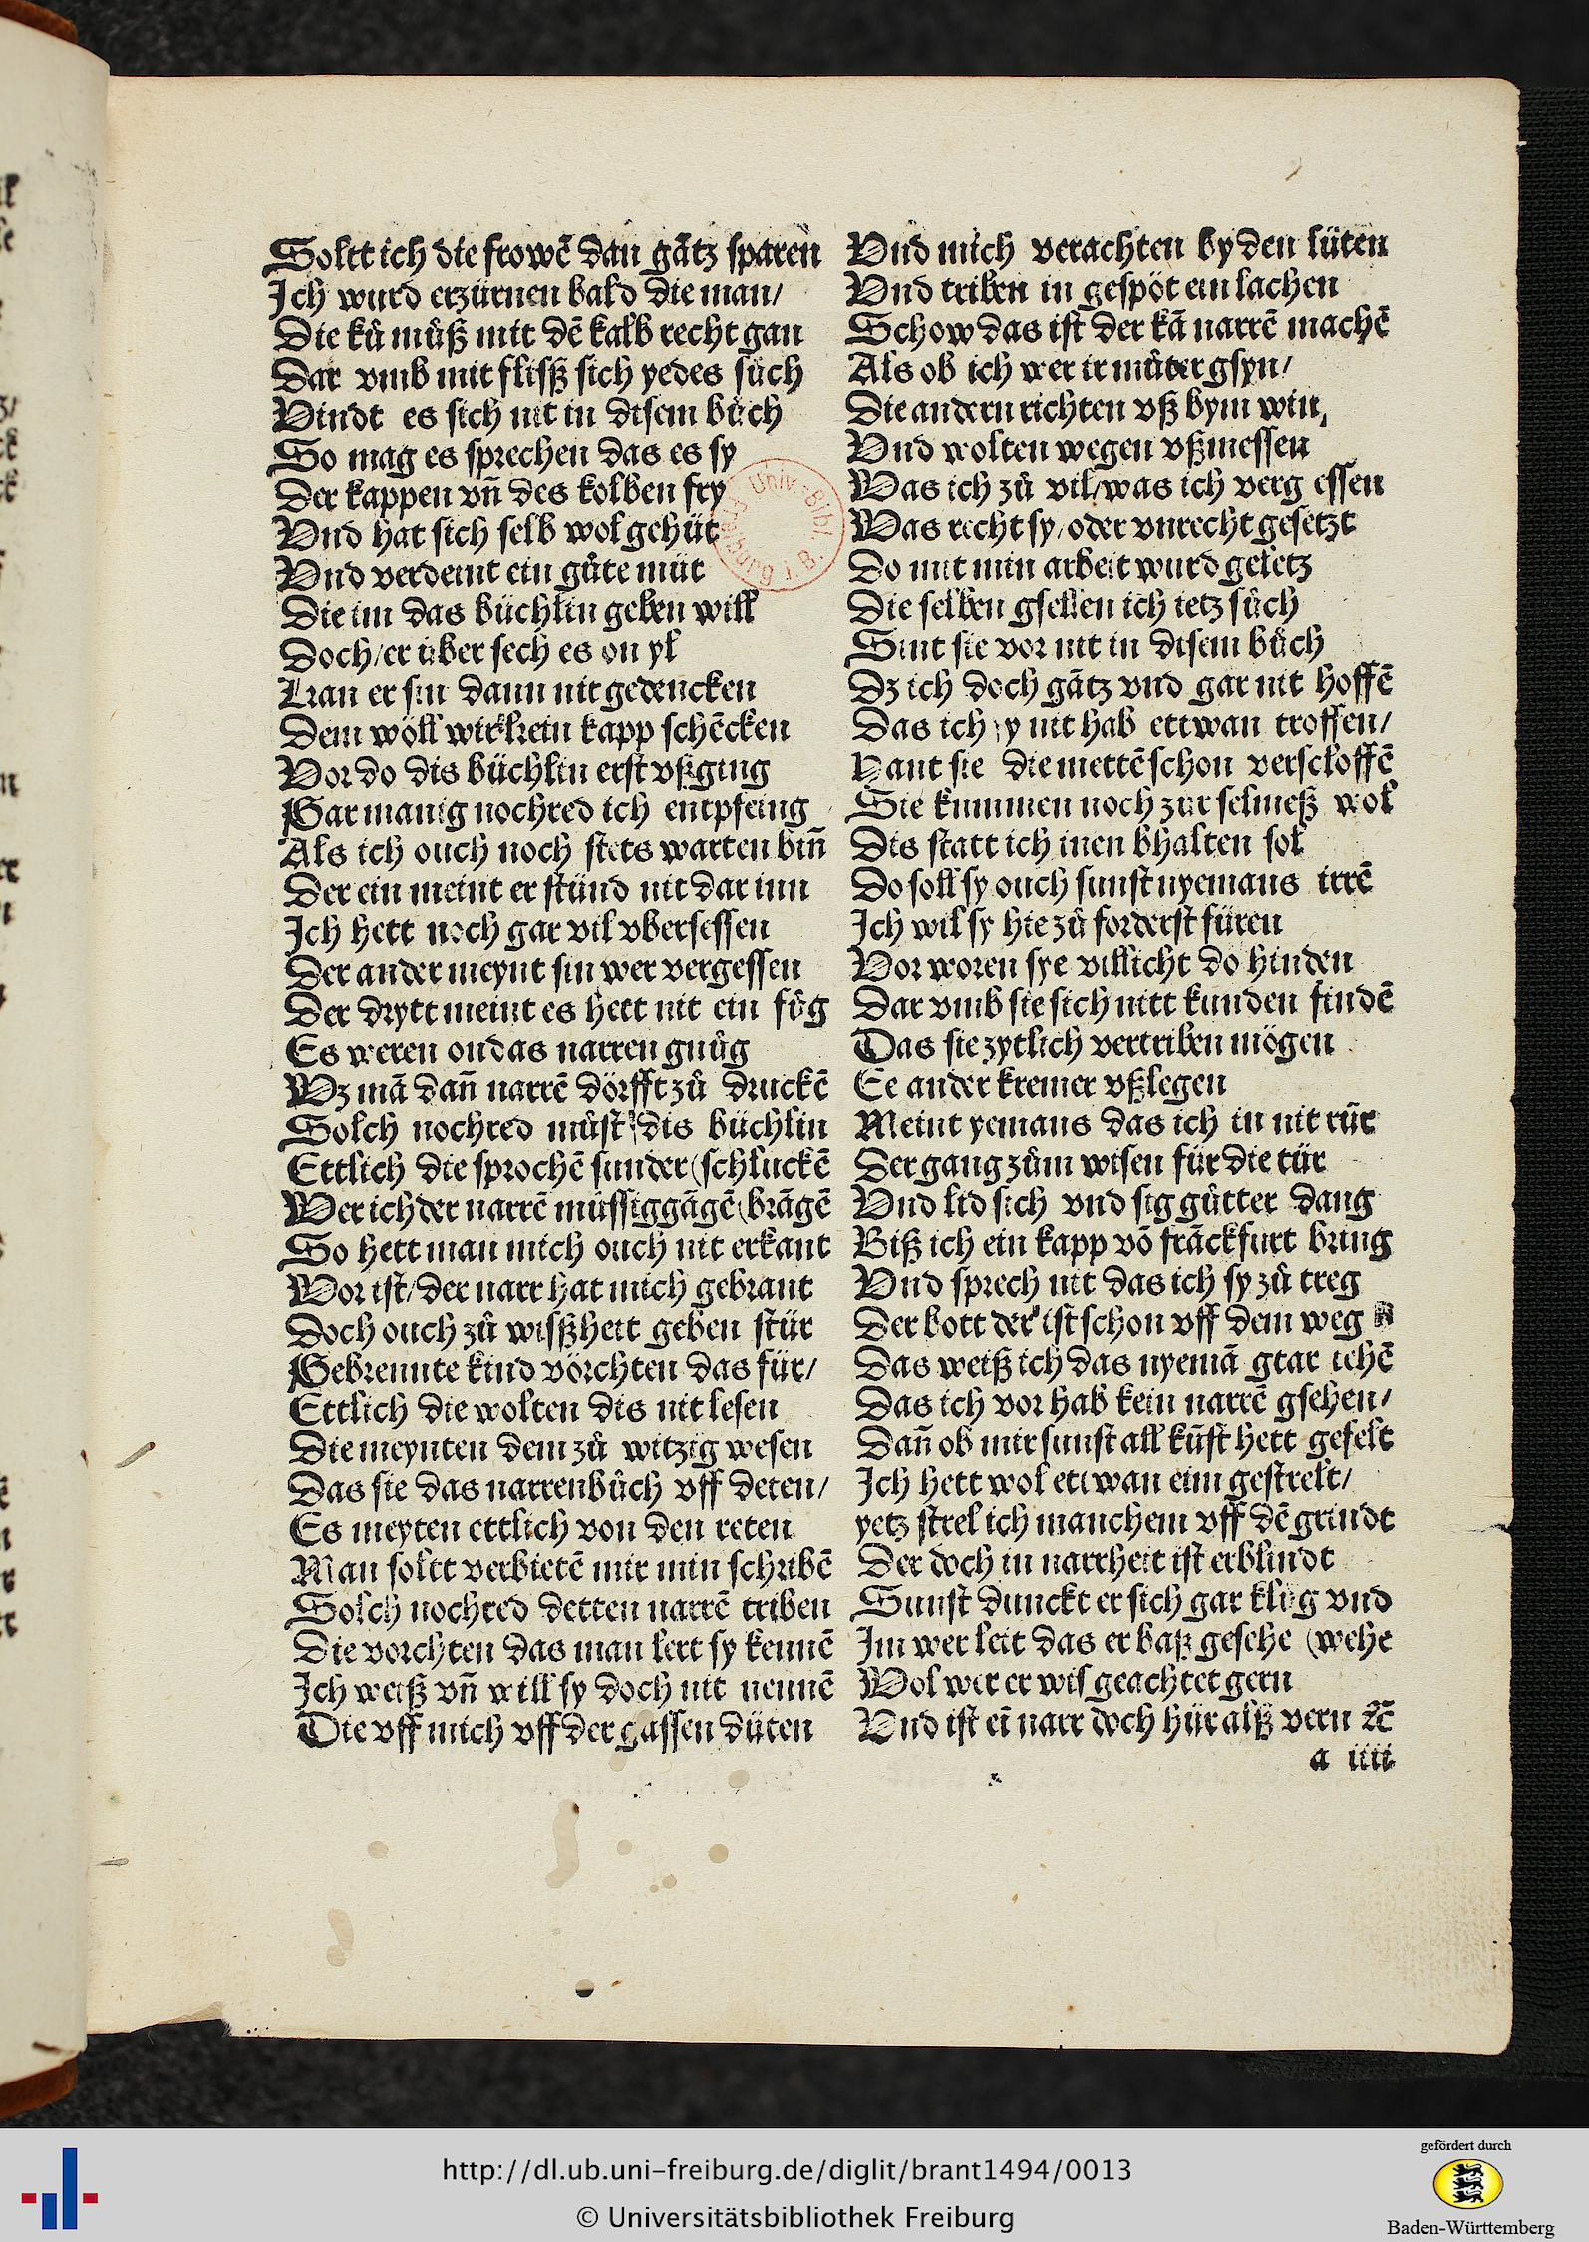 Soltt ich die frowē dan gātz sparen
Ich wurd erzürnen bald die man/
Die ků můß mit dē kalb recht gan
Dar vmb mit flisß sich yedes sůch
Vindt es sich nit in disem bůch
So mag es sprechen das es sy
Der kappen vn̄ des kolben fry
Vnd hat sich selb wol gehüt
Vnd verdeint ein gůte müt
Die im das büchlin geben will
Doch/er über sech es on yl
Kan er sin dann nit gedencken
Dem wöll wir ein kapp schēcken
Vor do dis büchlin erst vßging
Gar manig nochred ich entpfeing
Als ich ouch noch stets warten bin̄
Der ein meint er stünd nit dar inn
Ich hett noch gar vil vbersessen
Der ander meynt sin wer vergessen
Der drytt meint es hett nit ein fůg
Es weren on das narren gnůg
Wz mā dan̄ narrē dörfft zů druckē
Solch nochred můst dis büchlin
Ettlich die sprochē sunder (schluckē
Wer ich der narrē müssiggāgē (brāgē
So hett man mich ouch nit erkant
Wor ist/der narr hat mich gebrant
Doch ouch zů wisßheit geben stür
Gebrennte kind vörchten das für/
Ettlich die wolten dis nit lesen
Die meynten dem zů witzig wesen
Das sie das narrenbůch vff deten/
Es meyten ettlich von den reten
Man soltt verbietē mir min schribē
Solch nochred detten narrē triben
Die vorchten das man lert sy kennē
Ich weiß vn̄ will sy doch nit nennē
Die vff mich vff der gassen düten
Vnd mich verachten by den lüten
Vnd triben in gespöt ein lachen
Schow das ist der kā narrē machē
Als ob ich wer ir můter gsyn/
Die andern richten vß bym win,
Vnd wolten wegen vßmessen
Was ich zů vil/was ich verg essen
Was recht sy/oder vnrecht gesetzt
Do mit min arbeit wurd geletz
Die selben gsellen ich ietz sůch
Sint sie vor nit in disem bůch
Dz ich doch gātz vnd gar nit hoffē
Das ich sy nit hab ettwan troffen/
Hant sie die mettē schon verscloffē
Sie kummen noch zur selmeß wol
Dis statt ich inen bhalten sol
Do soll sy ouch sunst nyemans irrē
Ich wil sy hie zů forderst füren
Vor woren sye villicht do hinden
Dar vmb sie sich nitt kunden findē
Das sie zytlich vertriben mögen
Ee ander kremer vßlegen
Meint yemans das ich in nit rür
Der gang zům wisen für die tür
Vnd lid sich vnd sig gůtter dang
Biß ich ein kapp vō frāckfurt bring
Vnd sprech nit das ich sy zů treg
Der bott der ist schon vff dem weg
Das weiß ich das nyemā gtar iehē
Das ich vor hab kein narrē gsehen/
Dan̄ ob mir sunst all kūst hett gefelt
Ich hett wol ettwan eim gestrelt/
yetz strel ich manchem vff dē grindt
Der doch in narrheit ist erblindt
Sunst dunckt er sich gar klůg vnd
Im wer leit das er baß gesehe (wehe
Wol wer er wis geachtet gern
Vnd ist eī narr doch hür alß vern ꝛc̄
a iiii
Univ.-Bibl.
Freiburg i. B.
http://dl.ub.uni-freiburg.de/diglit/brant1494/0013
© Universitätsbibliothek Freiburg
gefördert durch
Baden-Württemberg